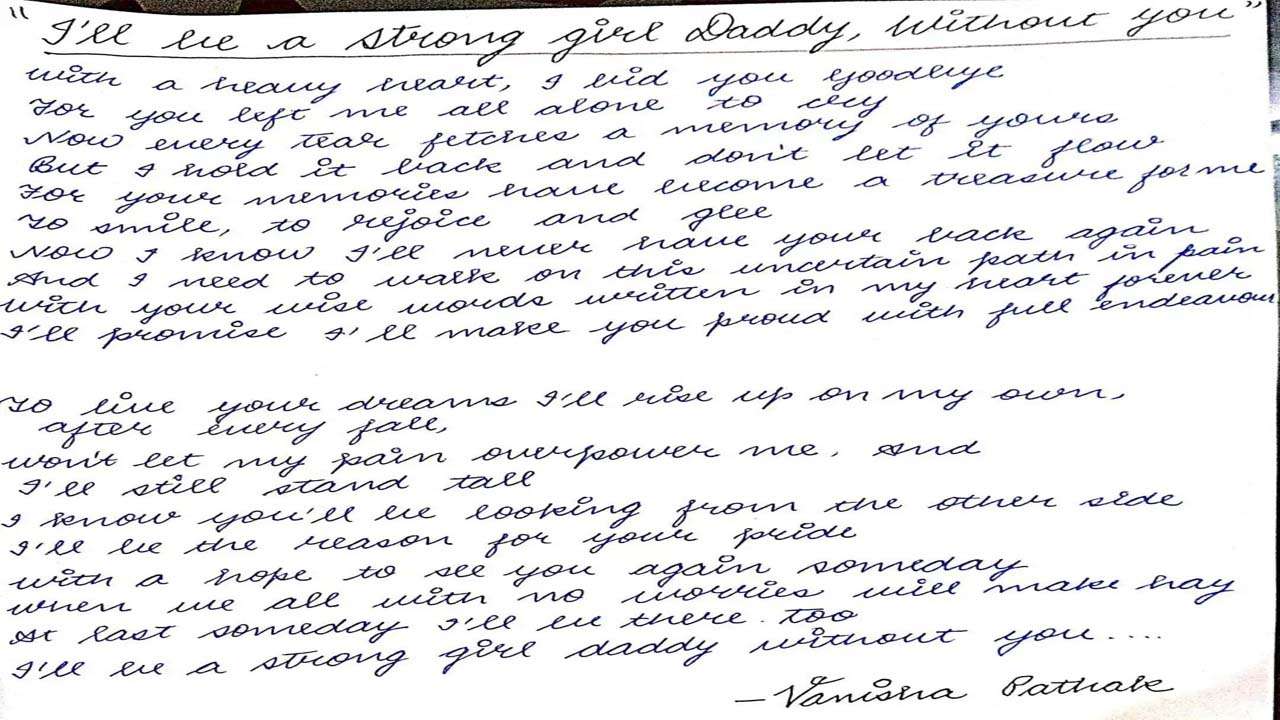 "I'll be a strong girl Daddy, without you"
with a heavy heart, I bid you goodbye
For you left me all alone to cry
Now every tear fetches a memory of yours
But I hold it back and don't let it flow
For your memories have become a treasure for me
To smile, to rejoice and glee
Now I know I'll never have your back again
And I need to walk on this uncertain path in pain
with your wise words written in my heart forever
I'll promise I'll make you proud with full endeavour
To live your dreams I'll rise up on my own,
after every fall,
won't let my pain overpower me. And
I'll still stand tall
I know you'll be looking from the other side
I'll be the reason for your pride
with a hope to see you again someday
when we all with no worries will make hay
At last someday I'll be there too
I'll be a strong girl daddy without you....
- Vanisha Pathak